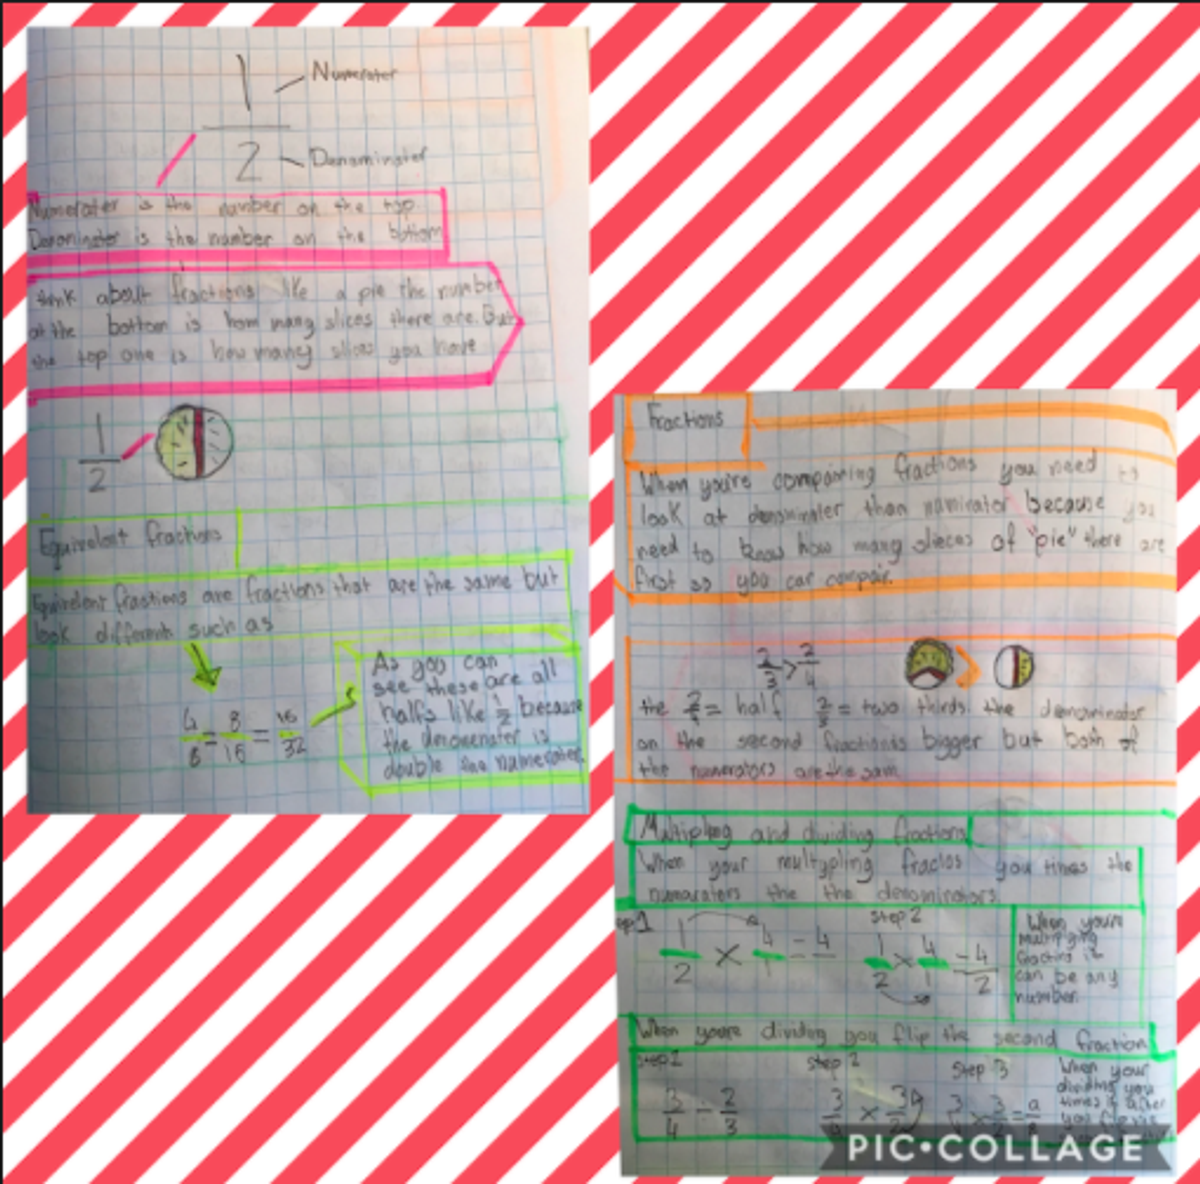 1
Numerater
2
Denominater
Numerater is the number on the top
Denominater is the number on the bottom
think about fractions like a pie the number
at the bottom is how many slices there are. But
the top one is how many slices you have
1
2
Equivelent fractions
Equivelent fractions are fractions that are the same but
look different such as
4/8 = 8/16 = 16/32
As you can
see these are all
halfs like 1/2 because
the denomenater is
double the numerater.
Fractions
When you're compairing fractions you need to
look at denominater than numirator because you
need to know how many slieces of "pie" there are
first so you can compair.
2/3 > 2/4
the 2/4 = half 2/3 = two thirds. the denominator
on the second fractionis bigger but both of
the numerators are the sam
Multipling and dividing fractions
When your multypling you times the
numaraters the the denominators.
step 2
1/2 × 4/1 = 4
1/2 × 4/1 = 4/2
When youre
Multiplying
can be any
number.
When youre dividing you flip the second fraction
step 2
step 3
3/4 - 2/3
When your
dividing you
PIC•COLLAGE